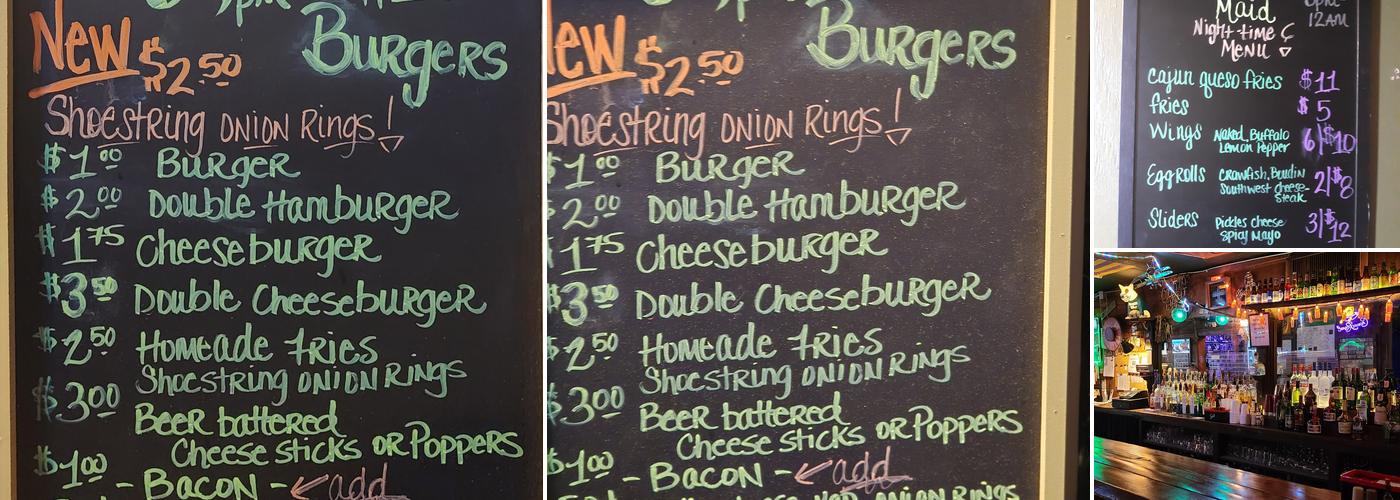 New $2.50 Burgers
Shoestring ONION Rings!
$1.00 Burger
$2.00 Double Hamburger
$1.75 Cheeseburger
$3.50 Double Cheeseburger
$2.50 Homeade fries
Shoestring ONION Rings
$3.00 Beer battered
Cheese sticks OR Poppers
$1.00 - Bacon - ← add
New $2.50 Burgers
Shoestring ONION Rings!
$1.00 Burger
$2.00 Double Hamburger
$1.75 Cheeseburger
$3.50 Double Cheeseburger
$2.50 Homeade fries
Shoestring ONION Rings
$3.00 Beer battered
Cheese sticks OR Poppers
$1.00 - Bacon - ← add
ONION Rings
Maid
12AM
Night-time
Menu
Cajun queso fries $11
fries $5
Wings Naked, Buffalo 6|$10
Lemon Pepper
Eggrolls Crawfish, Boudin 2|$8
Southwest Cheese-
Steak
Sliders Pickles Cheese 3|$12
Spicy Mayo